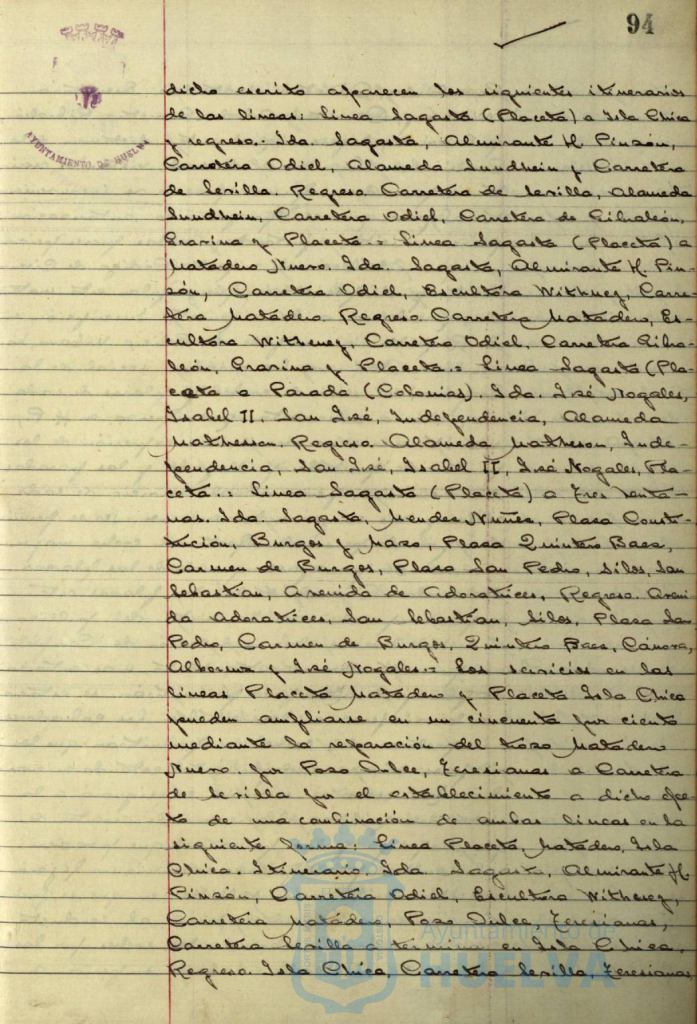 94
AYUNTAMIENTO DE HUELVA
dicho escrito aparecen los siguientes itinerarios
de las lineas: Linea Sagasta (Placeta) a Isla Chica
y regreso.- Ida. Sagasta, Almirante H. Pinzón,
Carretera Odiel, Alameda Sundhein y Carretera
de Sevilla. Regreso. Carretera de Sevilla, Alameda
Sundhein, Carretera Odiel, Carretera de Gibraleón,
Gravina y Placeta.= Linea Sagasta (Placeta) a
Matadero Nuevo. Ida. Sagasta, Almirante H. Pin-
zón, Carretera Odiel, Escultora Withney, Carre-
tera Matadero. Regreso. Carretera Matadero, Es-
cultora Witheney, Carretera Odiel, Carretera Gibra-
león, Gravina y Placeta.= Linea Sagasta (Pla-
ceta a Parada (Colonias). Ida. José Nogales,
Isabel II, San José, Independencia, Alameda
Mathesson. Regreso. Alameda Matheson, Inde-
pendencia, San José, Isabel II, José Nogales, Pla-
ceta.= Linea Sagasta (Placeta) a Tres Venta-
nas. Ida. Sagasta, Mendez Nuñez, Plaza Consti-
tución, Burgos y Mazo, Plaza Quintero Baez,
Carmen de Burgos, Plaza San Pedro, Silos, San
Sebastian, Avenida de Adoratrices, Regreso. Aveni-
da Adoratrices, San Sebastian, Silos, Plaza San
Pedro, Carmen de Burgos, Quintero Baez, Cánova,
Albornoz y José Nogales.= Los servicios en las
lineas Placeta Matadero y Placeta Isla Chica
pueden ampliarse en un cincuenta por ciento
mediante la reparación del trozo Matadero
Nuevo, por Pozo Dulce, Teresianas a Carretera
de Sevilla por el establecimiento a dicho efec-
to de una combinación de ambas lineas en la
siguiente forma: Linea Placeta, Matadero, Isla
Chica. Itinerario. Ida Sagasta, Almirante H.
Pinzón, Carretera Odiel, Escultora Witheney,
Carretera Matadero, Pozo Dulce, Teresianas,
Carretera Sevilla a termino en Isla Chica,
Regreso. Isla Chica, Carretera Sevilla, Teresianas,
Ayuntamiento de
HUELVA